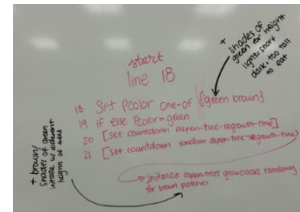 start
line 18
18 set Pcolor one-of [green brown]
19 if else Pcolor=green
20 [set countdown aspen-tree-regrowth-time]
21 [set countdown random aspen-tree-regrowth-time]
→ initialize aspen trees grow clocks randomly
for brown patches
+ shades of
green for height
light=short
dark=too tall
to eat
+ brown/
shades of green
height of trees